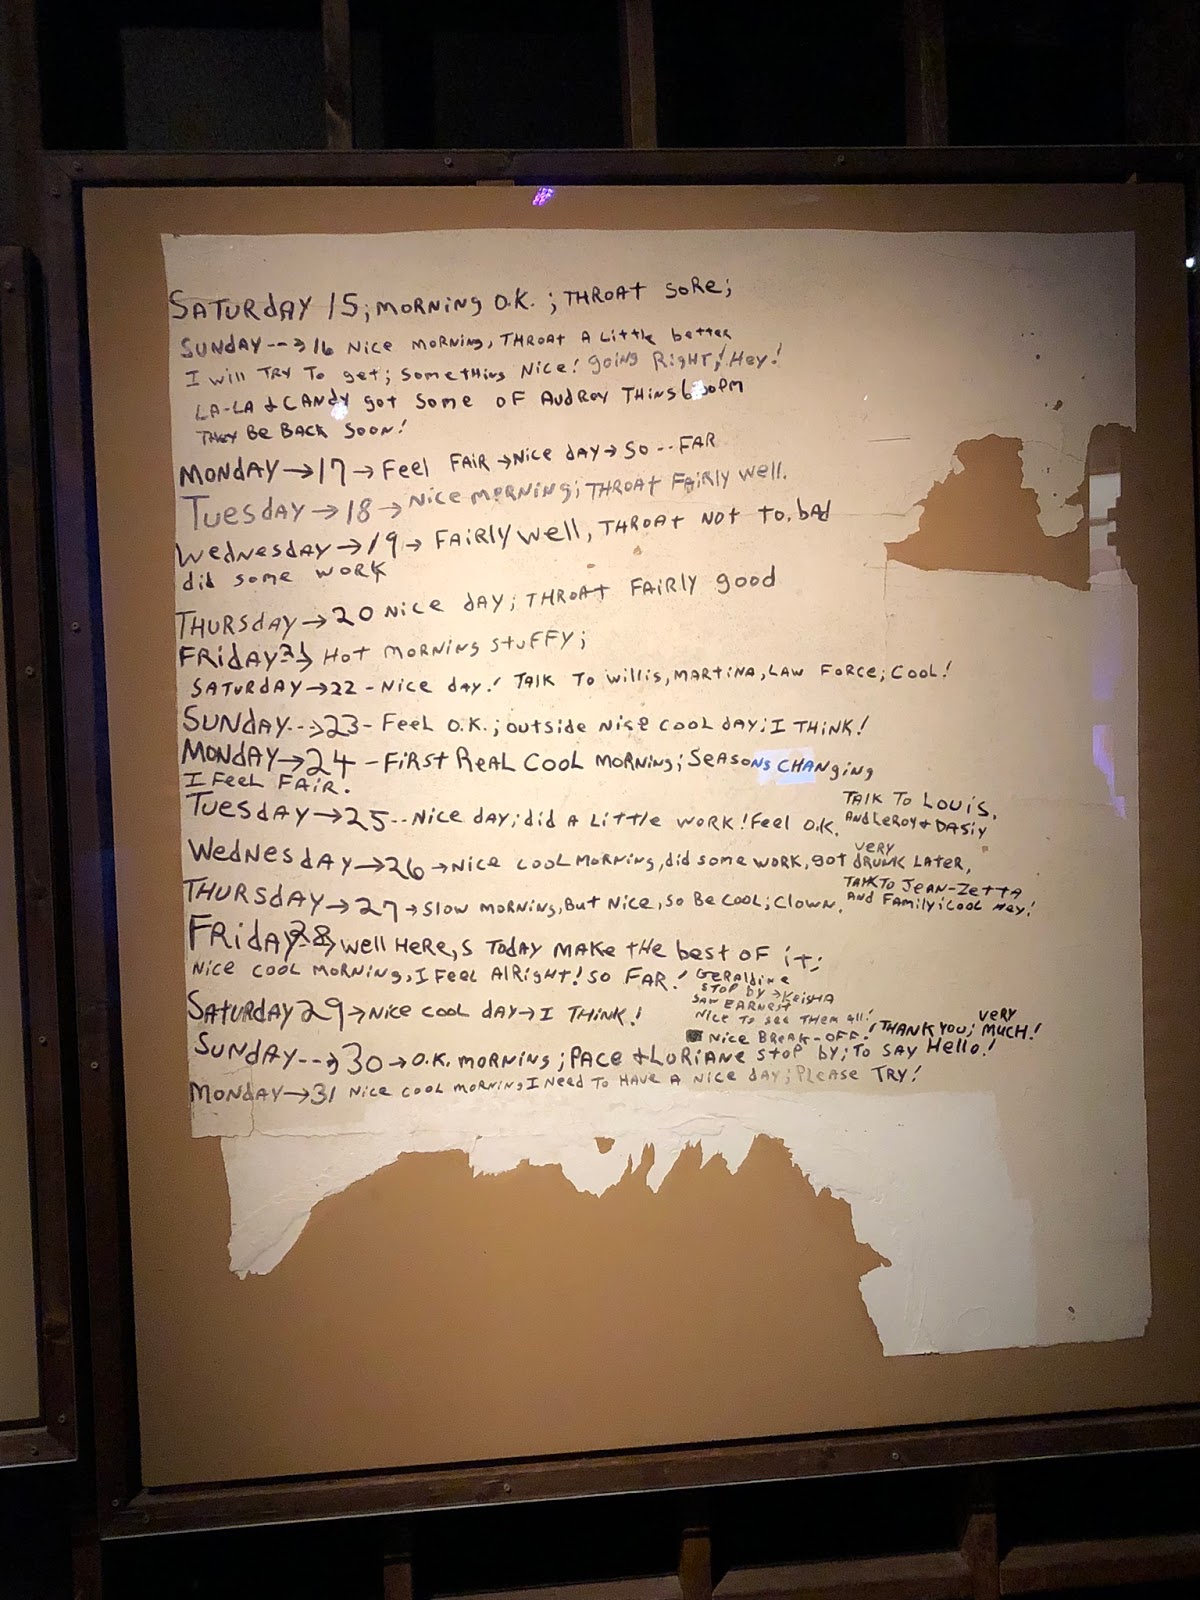 SATURdAY 15; MORNiNg O.K. ; THROAt SoRe;
SUNdAY --→ 16 Nice MoRNiNg, THROAt A Little better
I will TRY To get; SomethiNg Nice! goiNg RigHT! Hey!
LA-LA & CANdY got Some oF AudRey THiNgs 6:30pM
THeY Be BAck SooN!
MONdAY → 17 → Feel FAiR → Nice dAY → So -- FAR
TuesdAY → 18 → Nice MoRNiNg; THROAt FAiRly well.
WedNesdAY → 19 → FAiRly well, THROAt Not To. bAd
did some woRK
THURSdAY → 20 Nice dAY; THROAt FAiRly good
FRidAY 21 → Hot MoRNiNg StuFFY;
SATURdAY → 22 - Nice dAY! TAlk To Willis, MARTiNA, LAW FoRce; Cool!
SUNdAY --→ 23 - Feel O.K.; outside Nice cool dAY; I THiNk!
MONdAY → 24 - FiRSt ReAL Cool MoRNiNg; SeASoNs CHANgiNg
I Feel FAiR.
TuesdAY → 25 -- Nice dAY; did A Little WoRk! Feel O.K. TAlk To Louis,
ANd LeRoy & DASiy
WedNesdAY → 26 → Nice cool MoRNiNg, did some WoRk, got very dRUNk LAteR,
THURSdAY → 27 → Slow MoRNiNg, But Nice, So Be Cool; Clown. TAlk To JeAN-ZettA
ANd FAMily; Cool Hey!
FRidAY 28 → Well HeRe,s TodAY MAke tHe best oF it;
Nice cool MoRNiNg, I Feel AlRigHt! So FAR! GeRAldiNe
Stop by → KeisHA
SAW EARNest
Nice To see THem all!
SAtURdAY 29 → Nice cool dAY → I THiNk!
Nice BReAk-oFF! THANk You; very MucH!
SUNdAY --→ 30 → O.K. MoRNiNg; PAce & LoRiANe stop by; To SAY Hello!
MONdAY → 31 Nice cool MoRNiNg, I Need To HAve A Nice dAY; PleAse TRY!